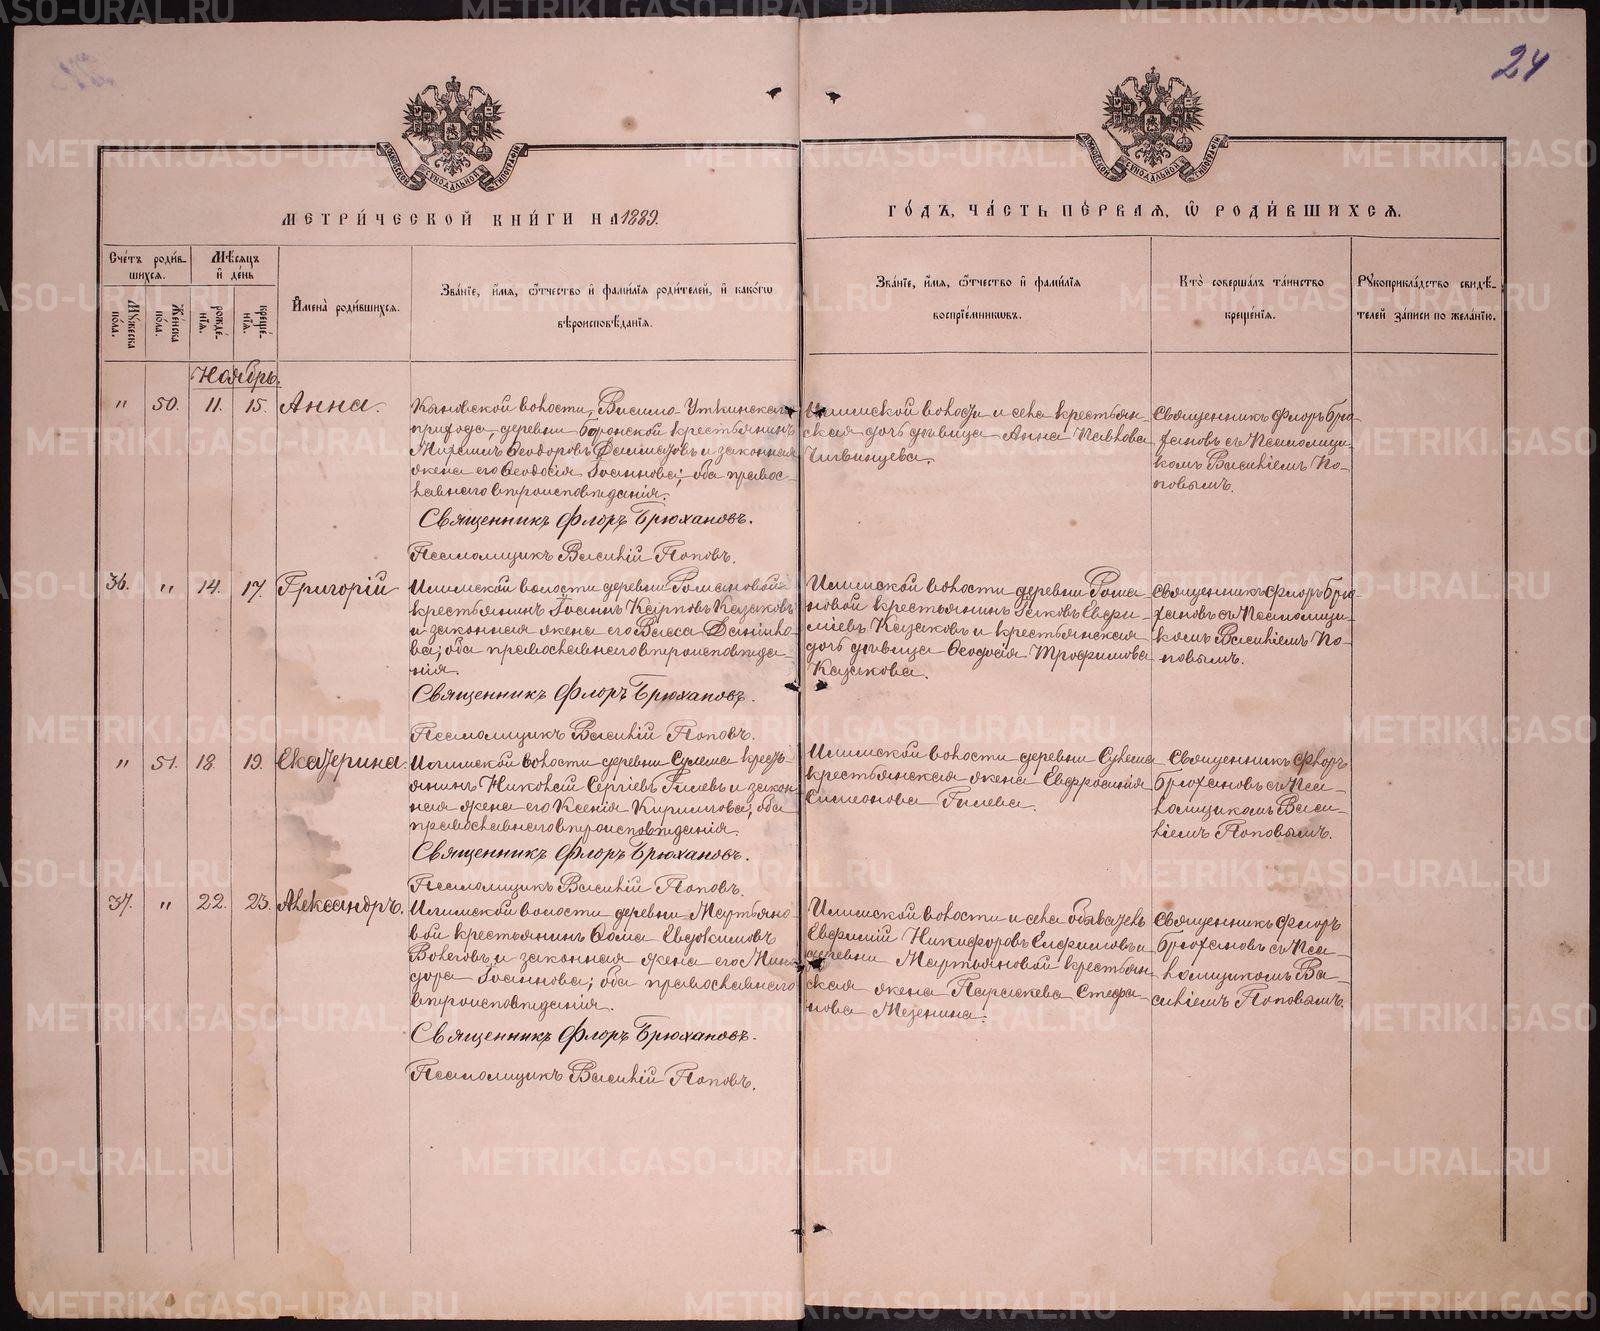 24
МЕТРИЧЕСКОЙ КНИГИ НА 1889.
ГОДЪ, ЧАСТЬ ПЕРВАЯ, Ѿ РОДИВШИХСЯ.
Счетъ родившихся.
Мужеска пола.
Женска пола.
Мѣсяцъ и день
рожденія.
крещенія.
Имена родившихся.
Званіе, имя, отчество и фамилія родителей, и какогѡ
вѣроисповѣданія.
Званіе, имя, отчество и фамилія
воспріемниковъ.
Кто совершалъ таинство
крещенія.
Рукоприкладство свидѣ-
телей записи по желанію.
Ноябрь.
" 50. 11. 15. Анна.
Кыновской волости, Васило-Уткинскаго
прихода, деревни Боронской крестьянинъ
Ѳеодоровъ и законная
жена его Ѳеодосія Іоаннова; оба правос-
лавнаго вѣроисповѣданія.
Священникъ Флоръ Брюхановъ.
Псаломщикъ Василій Поповъ.
Илимской волости и села крестьян-
ская дочь дѣвица Анна Павлова
Чигвинцева.
Священникъ Флоръ Брю-
хановъ съ Псаломщи-
комъ Василіемъ По-
повымъ.
36. " 14. 17. Григорій
Илимской волости деревни Романовой
крестьянинъ Іоаннъ Карповъ Казаковъ
и законная жена его Васса Данило-
ва; оба православнаго вѣроисповѣда-
нія.
Священникъ Флоръ Брюхановъ.
Псаломщикъ Василій Поповъ.
Илимской волости деревни Рома
новой крестьянинъ Іаковъ Евфи-
міевъ Казаковъ и крестьянская
дочь дѣвица Ѳеодосія Трофимова
Казакова.
Священникъ Флоръ Брю-
хановъ съ Псаломщи-
комъ Василіемъ По-
повымъ.
" 51. 18. 19. Екатерина.
Илимской волости деревни Сулема кресть-
янинъ Николай Сергіевъ Гилевъ и закон-
ная жена его Ксенія Кириллова; оба
православнаго вѣроисповѣданія.
Священникъ Флоръ Брюхановъ.
Псаломщикъ Василій Поповъ.
Илимской волости деревни Сулема
крестьянская жена Евфросинія
Симеонова Гилева.
Священникъ Флоръ
Брюхановъ съ Пса-
ломщикомъ Васи-
ліемъ Поповымъ.
37. " 22. 23. Александръ.
Илимской волости деревни Мартьяно-
вой крестьянинъ Ѳома Евдокимовъ
Волеговъ и законная жена его Мино-
дора Іоаннова; оба православнаго
вѣроисповѣданія.
Священникъ Флоръ Брюхановъ.
Псаломщикъ Василій Поповъ.
Илимской волости и села
Евфимій Никифоровъ Елфимовъ и
деревни Мартьяновой крестьян-
ская жена Параскева Стефа-
нова Мезенина.
Священникъ Флоръ
Брюхановъ съ Пса-
ломщикомъ Ва-
силіемъ Поповымъ.
METRIKI.GASO-URAL.RU